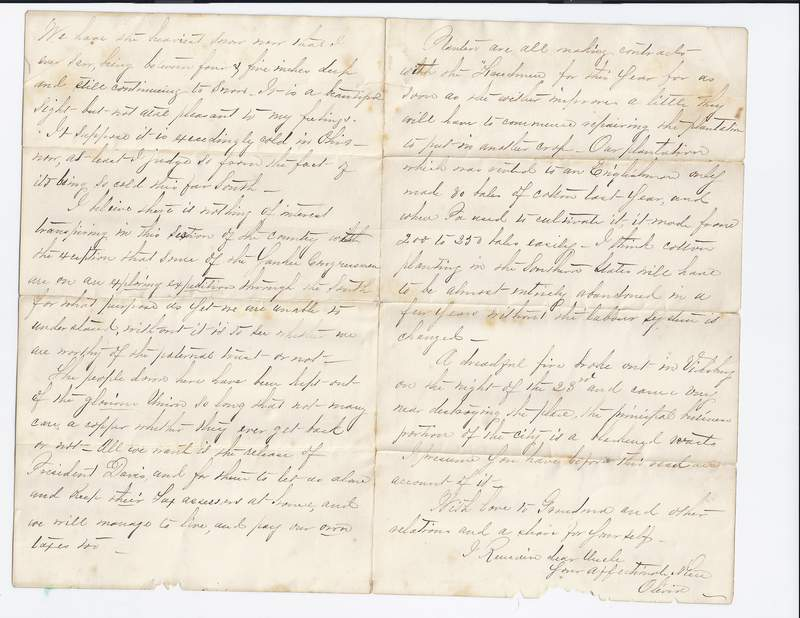 We have the heaviest snow now that I
ever saw, being between four & five inches deep
and still continuing to snow. It is a beautiful
sight but not at all pleasant to my feelings.
I suppose it is exceedingly cold in Ohio
now, at least I judge so from the fact of
its being so cold this far South —
I believe there is nothing of interest
transpiring in this section of the country with
the exception that some of the Yankee Congressmen
are on an exploring expedition through the South
for what purpose as yet we are unable to
understand, without it is to see whether we
are worthy of the paternal trust or not —
The people down here have been kept out
of the glorious Union so long that not many
care a copper whether they ever get back
or not — All we want is the release of
President Davis, and for them to let us alone
and keep their tax assessors at home, and
we will manage to live, and pay our own
taxes too —
Planters are all making contracts
with the Freedmen for this Year for as
soon as the weather improves a little they
will have to commence repairing the plantation
to put in another crop — Our plantation
which was rented to an Englishman only
made 80 bales of cotton last Year, and
when Pa used to cultivate it it made from
200 to 250 bales easily — I think cotton
planting in the Southern States will have
to be almost entirely abandoned in a
few Years without the labour system is
changed —
A dreadful fire broke out in Vicksburg
on the night of the 23rd and came very
near destroying the place, the principal business
portion of the city is a blackened waste
I presume you have before this read an
account of it —
With love to Grandma and other
relations and a share for Yourself —
I Remain dear Uncle
Your Affectionate Niece
Olivia —